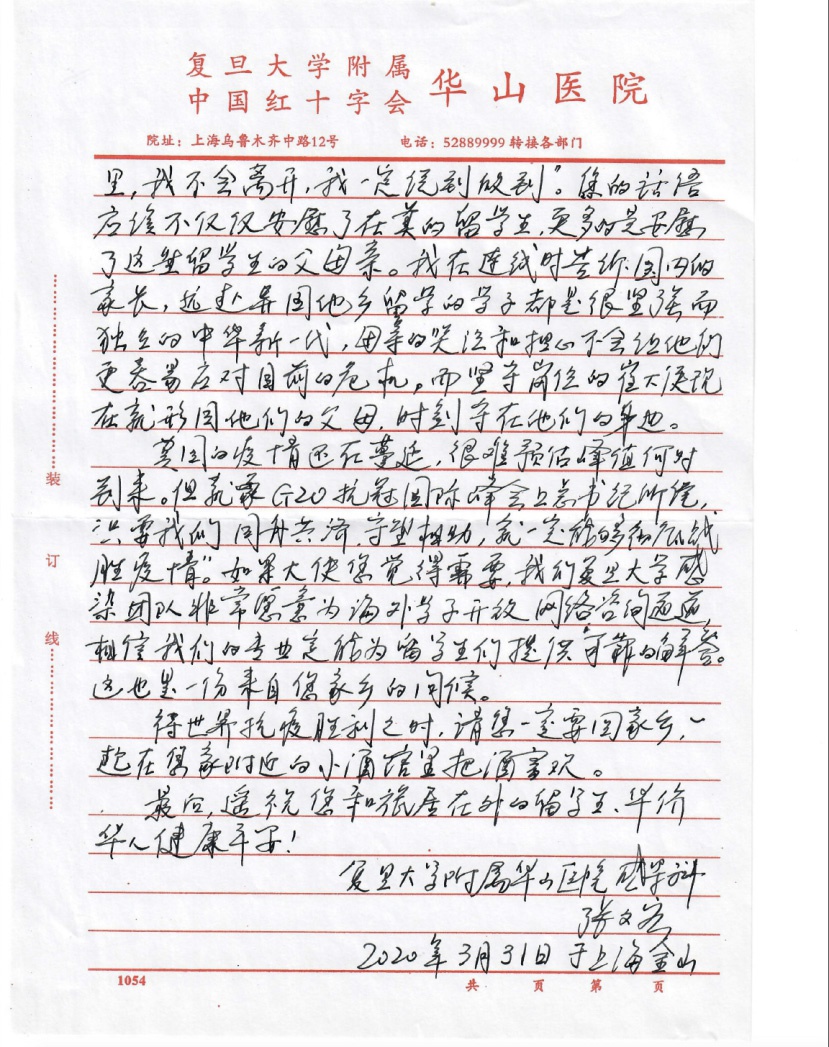 复旦大学附属
中国红十字会 华山医院
院址：上海乌鲁木齐中路12号 电话：52889999 转接各部门
里，我不会离开，我一定说到做到”。您的话语
应该不仅仅安慰了在英的留学生，更多的是安慰
了这些留学生的父母亲。我在连线时告诉国内的
家长，远赴异国他乡留学的学子都是很坚强而
独立的中华新一代，母亲的哭泣和担心不会让他们
更容易应对目前的危机，而坚守岗位的崔大使现
在就形同他们的父母，时刻守在他们的身边。
英国的疫情还在蔓延，很难预估峰值何时
到来。但就像G20抗冠国际峰会上总书记所说，
只要我们同舟共济，守望相助，就一定能够彻底战
胜疫情”。如果大使您觉得需要，我们复旦大学感
染团队非常愿意为海外学子开放网络咨询通道，
相信我们的专业定能为留学生们提供可靠的解答。
这也是一份来自您家乡的问候。
待世界抗疫胜利之时，请您一定要回家乡，一
起在您家附近的小酒馆里把酒言欢。
最后，遥祝您和旅居在外的留学生、华侨
华人健康平安！
复旦大学附属华山医院感染科
张文宏
2020年3月31日于上海金山
装
订
线
1054 共 页 第 页